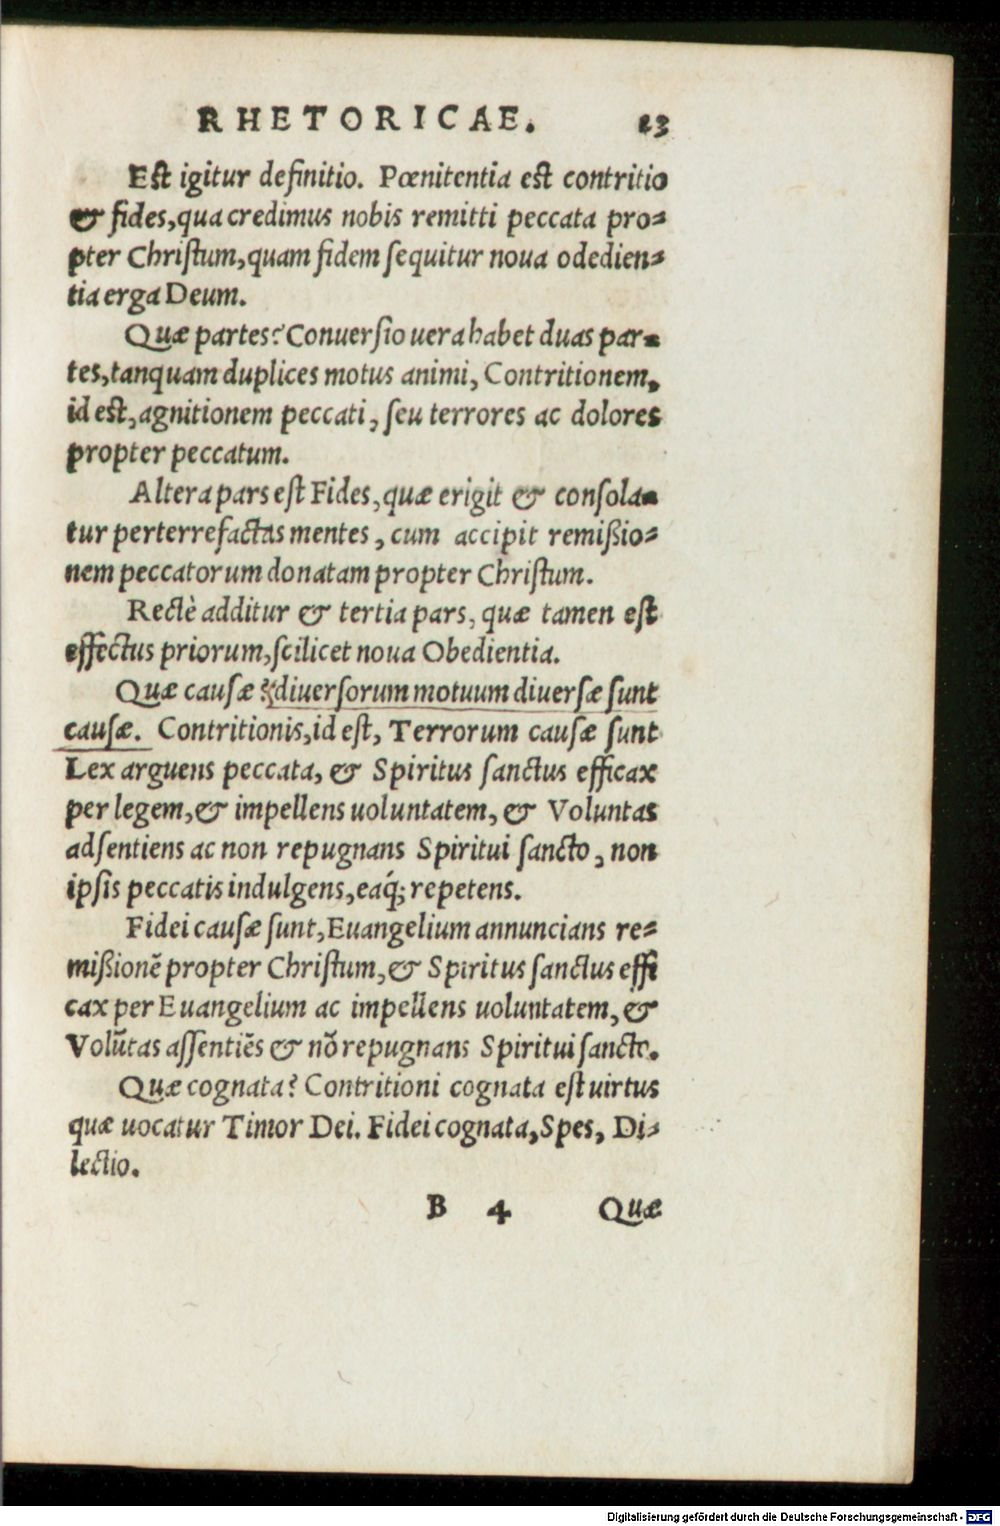 RHETORICAE. 23
Est igitur definitio. Pœnitentia est contritio
& fides, qua credimus nobis remitti peccata pro-
pter Christum, quam fidem sequitur noua odedien-
tia erga Deum.
Quæ partes? Conuersio uera habet duas par-
tes, tanquam duplices motus animi, Contritionem,
id est, agnitionem peccati, seu terrores ac dolores
propter peccatum.
Altera pars est Fides, quæ erigit & consola-
tur perterrefactas mentes, cum accipit remißio-
nem peccatorum donatam propter Christum.
Rectè additur & tertia pars, quæ tamen est
effectus priorum, scilicet noua Obedientia.
Quæ causæ? diuersorum motuum diuersæ sunt
causæ. Contritionis, id est, Terrorum causæ sunt
Lex arguens peccata, & Spiritus sanctus efficax
per legem, & impellens uoluntatem, & Voluntas
adsentiens ac non repugnans Spiritui sancto, non
ipsis peccatis indulgens, eaq́; repetens.
Fidei causæ sunt, Euangelium annuncians re-
mißionẽ propter Christum, & Spiritus sanctus effi
cax per Euangelium ac impellens uoluntatem, &
Volũtas assentiẽs & nõ repugnans Spiritui sancto.
Quæ cognata? Contritioni cognata est uirtus
quæ uocatur Timor Dei. Fidei cognata, Spes, Di-
lectio.
B 4 Quæ
Digitalisierung gefördert durch die Deutsche Forschungsgemeinschaft - DFG